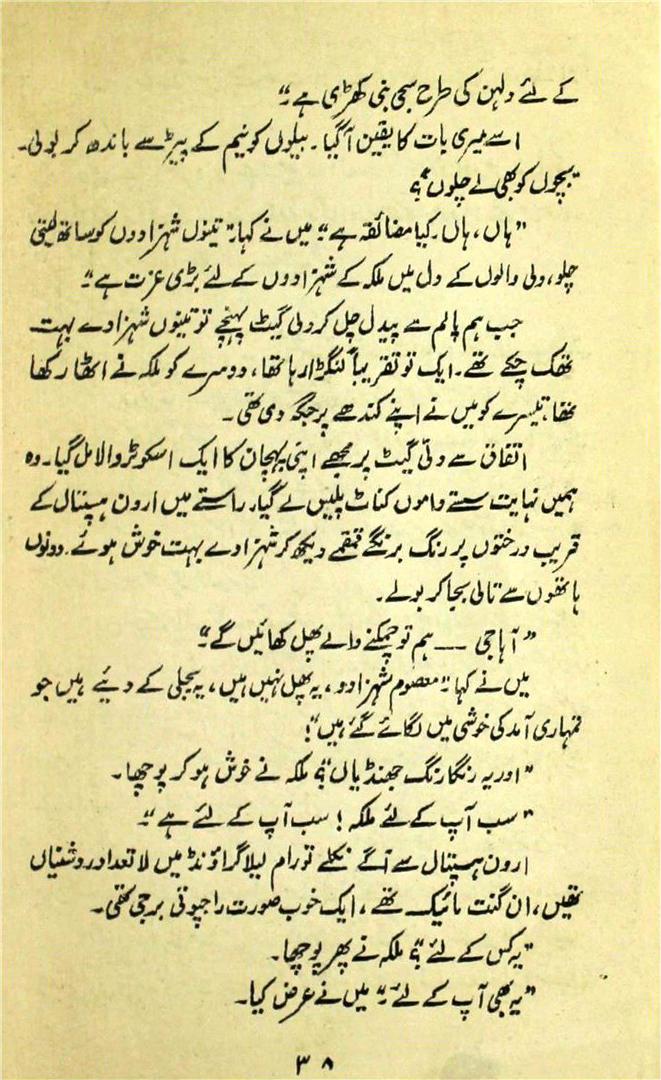 کے لئے دلہن کی طرح سجی بنی کھڑی ہے۔“
اسے میری بات کا یقین آگیا۔ بیلوں کو نیم کے پیڑ سے باندھ کر بولی۔
”بچوں کو بھی لے چلوں؟“
”ہاں، ہاں۔ کیا مضائقہ ہے“ میں نے کہا۔ ”تینوں شہزادوں کو ساتھ لیتی
چلو، دلی والوں کے دل میں ملکہ کے شہزادوں کے لئے بڑی عزت ہے“
جب ہم پالم سے پیدل چل کر دلی گیٹ پہنچے تو تینوں شہزادے بہت
تھک چکے تھے۔ ایک تو تقریباً لنگڑا رہا تھا، دوسرے کو ملکہ نے اٹھا رکھا
تھا، تیسرے کو میں نے اپنے کندھے پر جگہ دی تھی۔
اتفاق سے دلی گیٹ پر مجھے اپنی پہچان کا ایک اسکوٹر والا مل گیا۔ وہ
ہمیں نہایت سستے داموں کناٹ پلیس لے گیا۔ راستے میں ارون ہسپتال کے
قریب درختوں پر رنگ برنگے قمقمے دیکھ کر شہزادے بہت خوش ہوئے۔ دونوں
ہاتھوں سے تالی بجا کر بولے۔
”آہا جی ــــ ہم تو چمکنے والے پھل کھائیں گے“
میں نے کہا ”معصوم شہزادو، یہ پھل نہیں ہیں، یہ بجلی کے دیئے ہیں جو
تمہاری آمد کی خوشی میں لگائے گئے ہیں“!
”اور یہ رنگا رنگ جھنڈیاں؟“ ملکہ نے خوش ہو کر پوچھا۔
”سب آپ کے لئے ملکہ! سب آپ کے لئے ہے“۔
ارون ہسپتال سے آگے نکلے تو رام لیلا گراؤنڈ میں لاتعداد روشنیاں
تھیں، ان گنت مائیک تھے، ایک خوب صورت راجپوتی برجی تھی۔
”یہ کس کے لئے؟“ ملکہ نے پھر پوچھا۔
”یہ بھی آپ کے لئے“ میں نے عرض کیا۔
۳۸